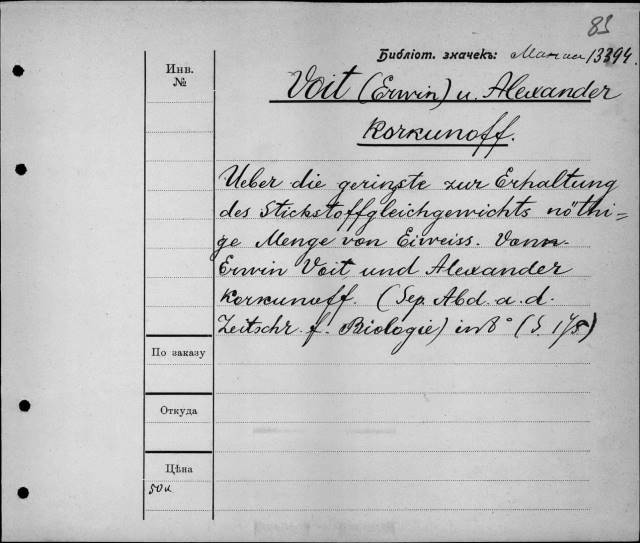 83
Библіот. значекъ: 13394.
Инв.
№
Voit (Erwin) u. Alexander
Korkunoff.
Ueber die geringste zur Erhaltung
des Stickstoffgleichgewichts nöthi=
ge Menge von Eiweiss. Von
Erwin Voit und Alexander
Korkunoff. (Sep. Abd. a. d.
Zeitschr. f. Biologie) in 8° (S.
По заказу
Откуда
Цѣна
50 к